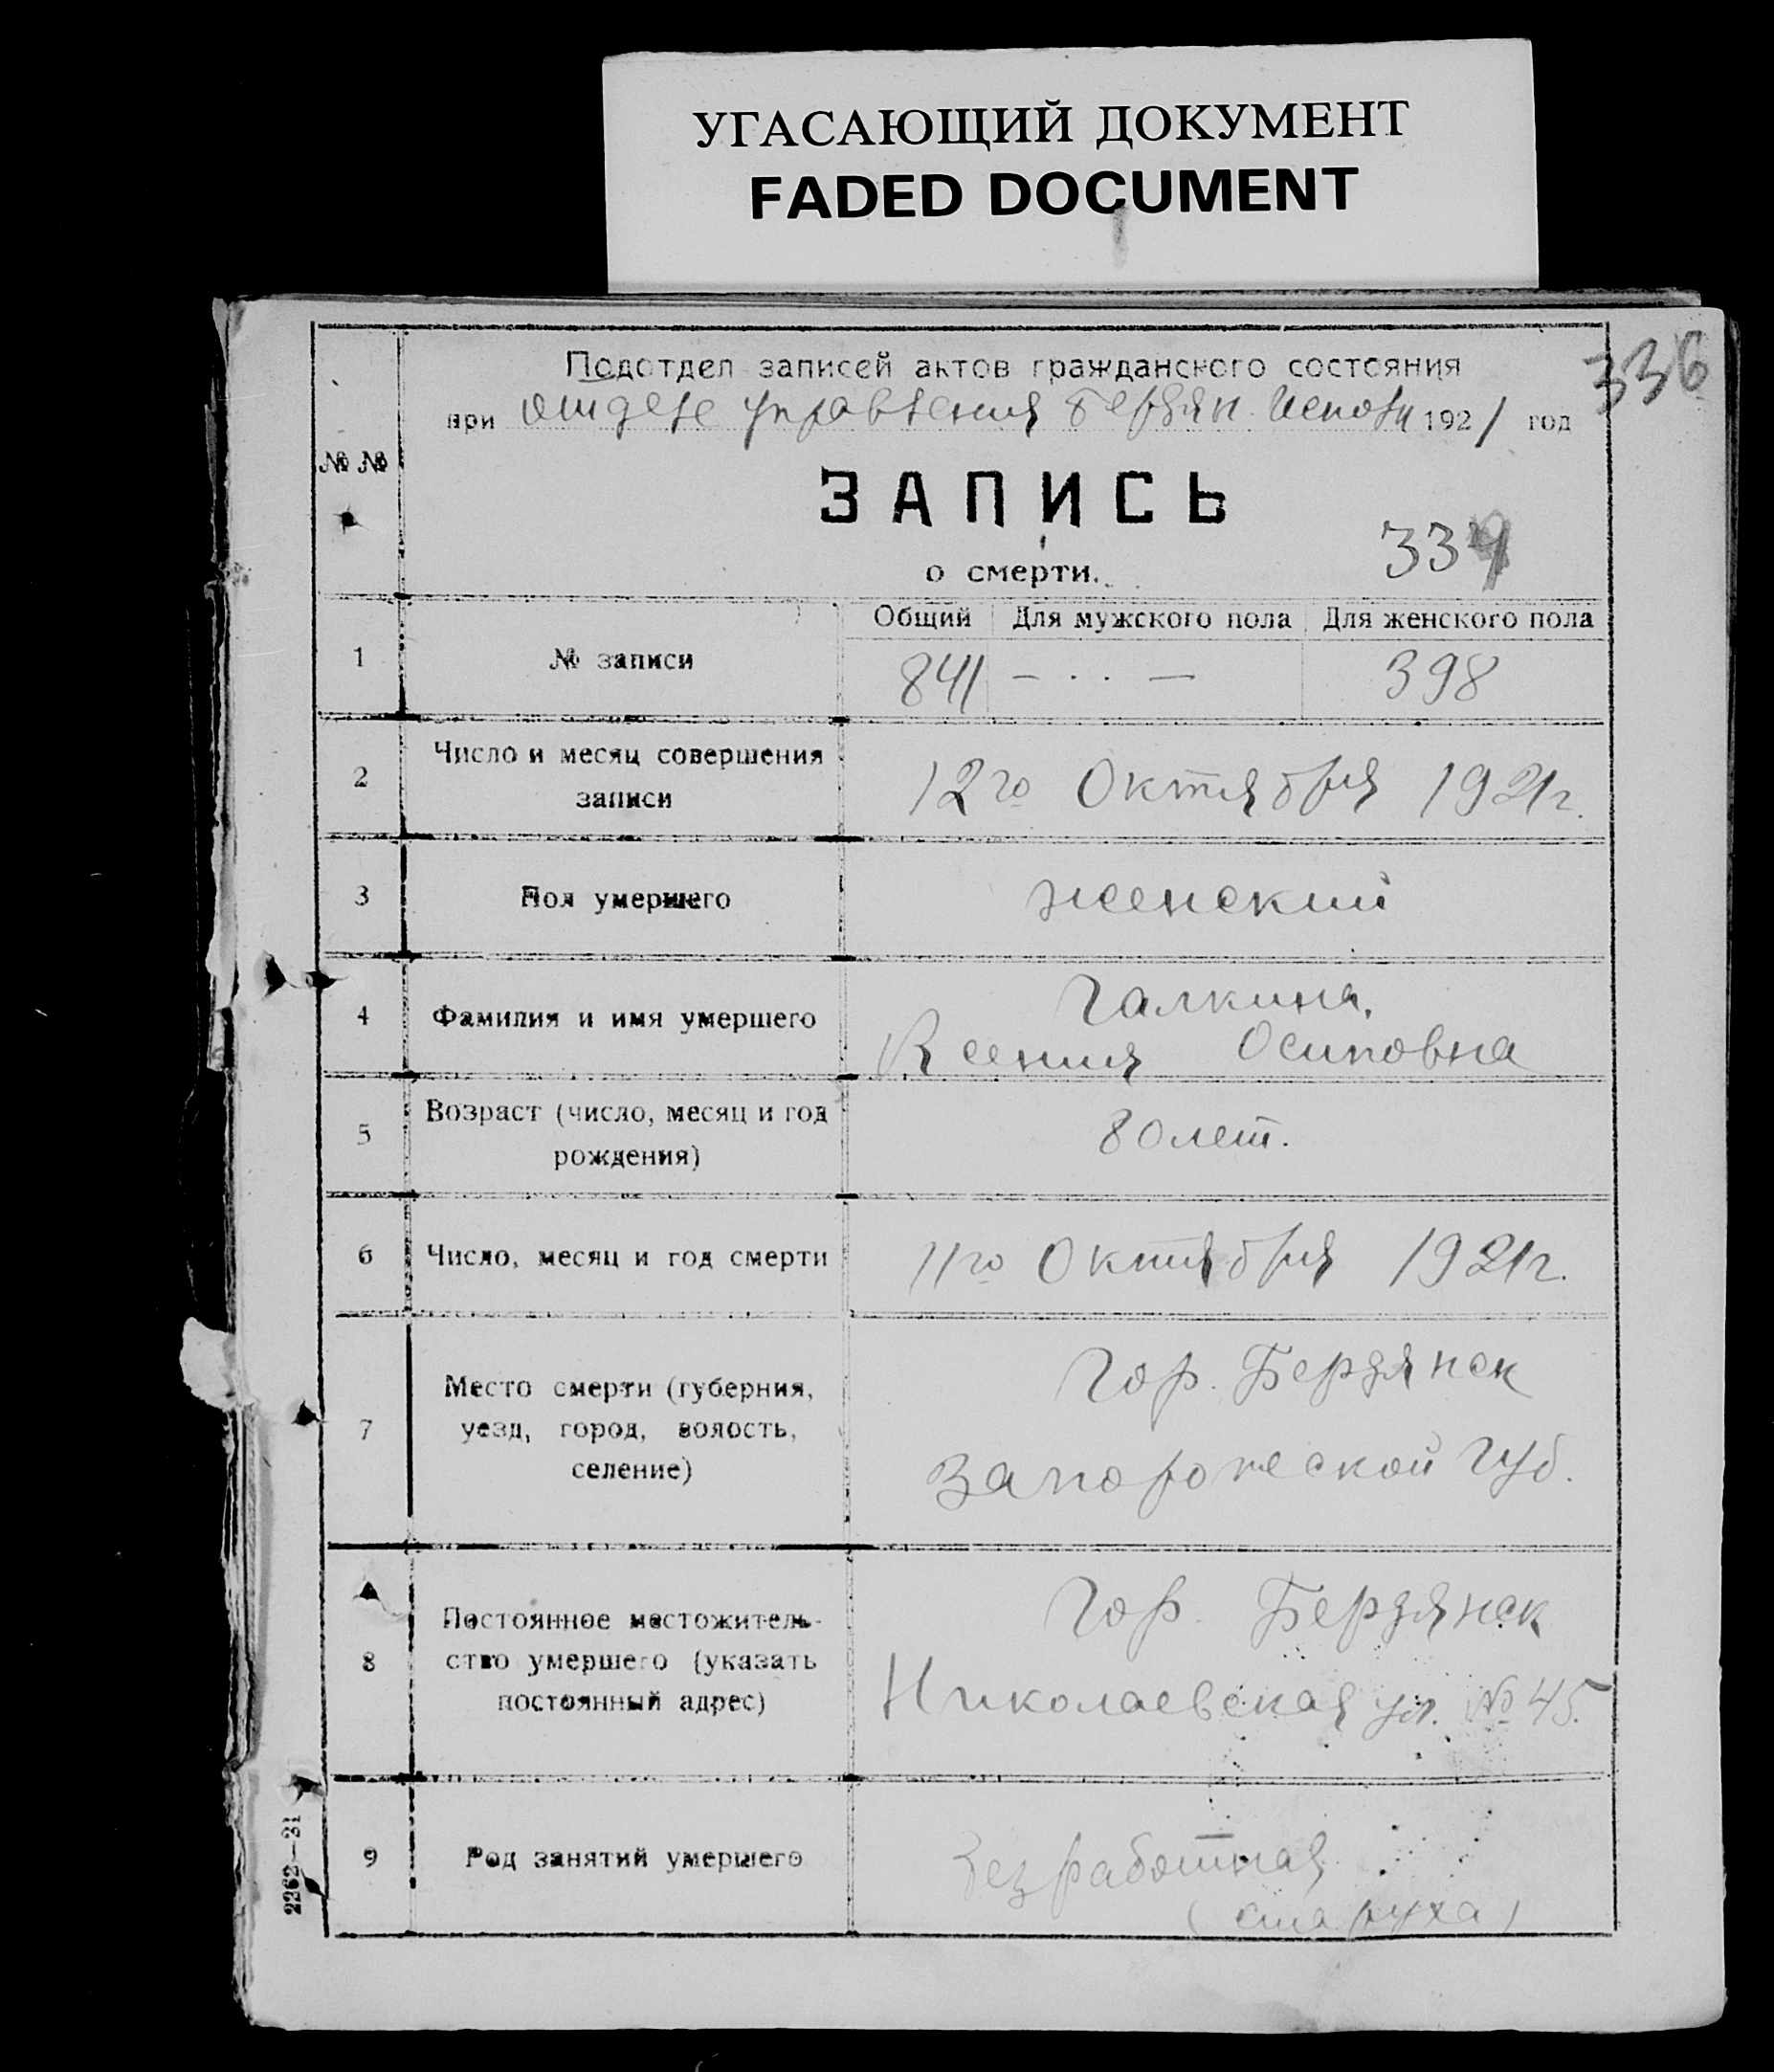 УГАСАЮЩИЙ ДОКУМЕНТ
FADED DOCUMENT
336
№ №
Подотдел записей актов гражданского состояния
при отделе управления Бердян. 1921 год
ЗАПИСЬ
о смерти.
Общий Для мужского пола Для женского пола
1 № записи 841 — · · — 398
2 Число и месяц совершения
записи
12го Октября 1921г.
3 Пол умершего женский
4 Фамилия и имя умершего
Галкина,
Ксения Осиповна
5 Возраст (число, месяц и год
рождения)
80 лет.
6 Число, месяц и год смерти 11го Октября 1921г.
7 Место смерти (губерния,
уезд, город, волость,
селение)
Гор. Бердянск
Запорожеской Губ.
8 Постоянное местожитель-
ство умершего (указать
постоянный адрес)
Гор. Бердянск
Николаевская ул. № 45.
9 Род занятий умершего
Безработная
(старуха)
2262—21